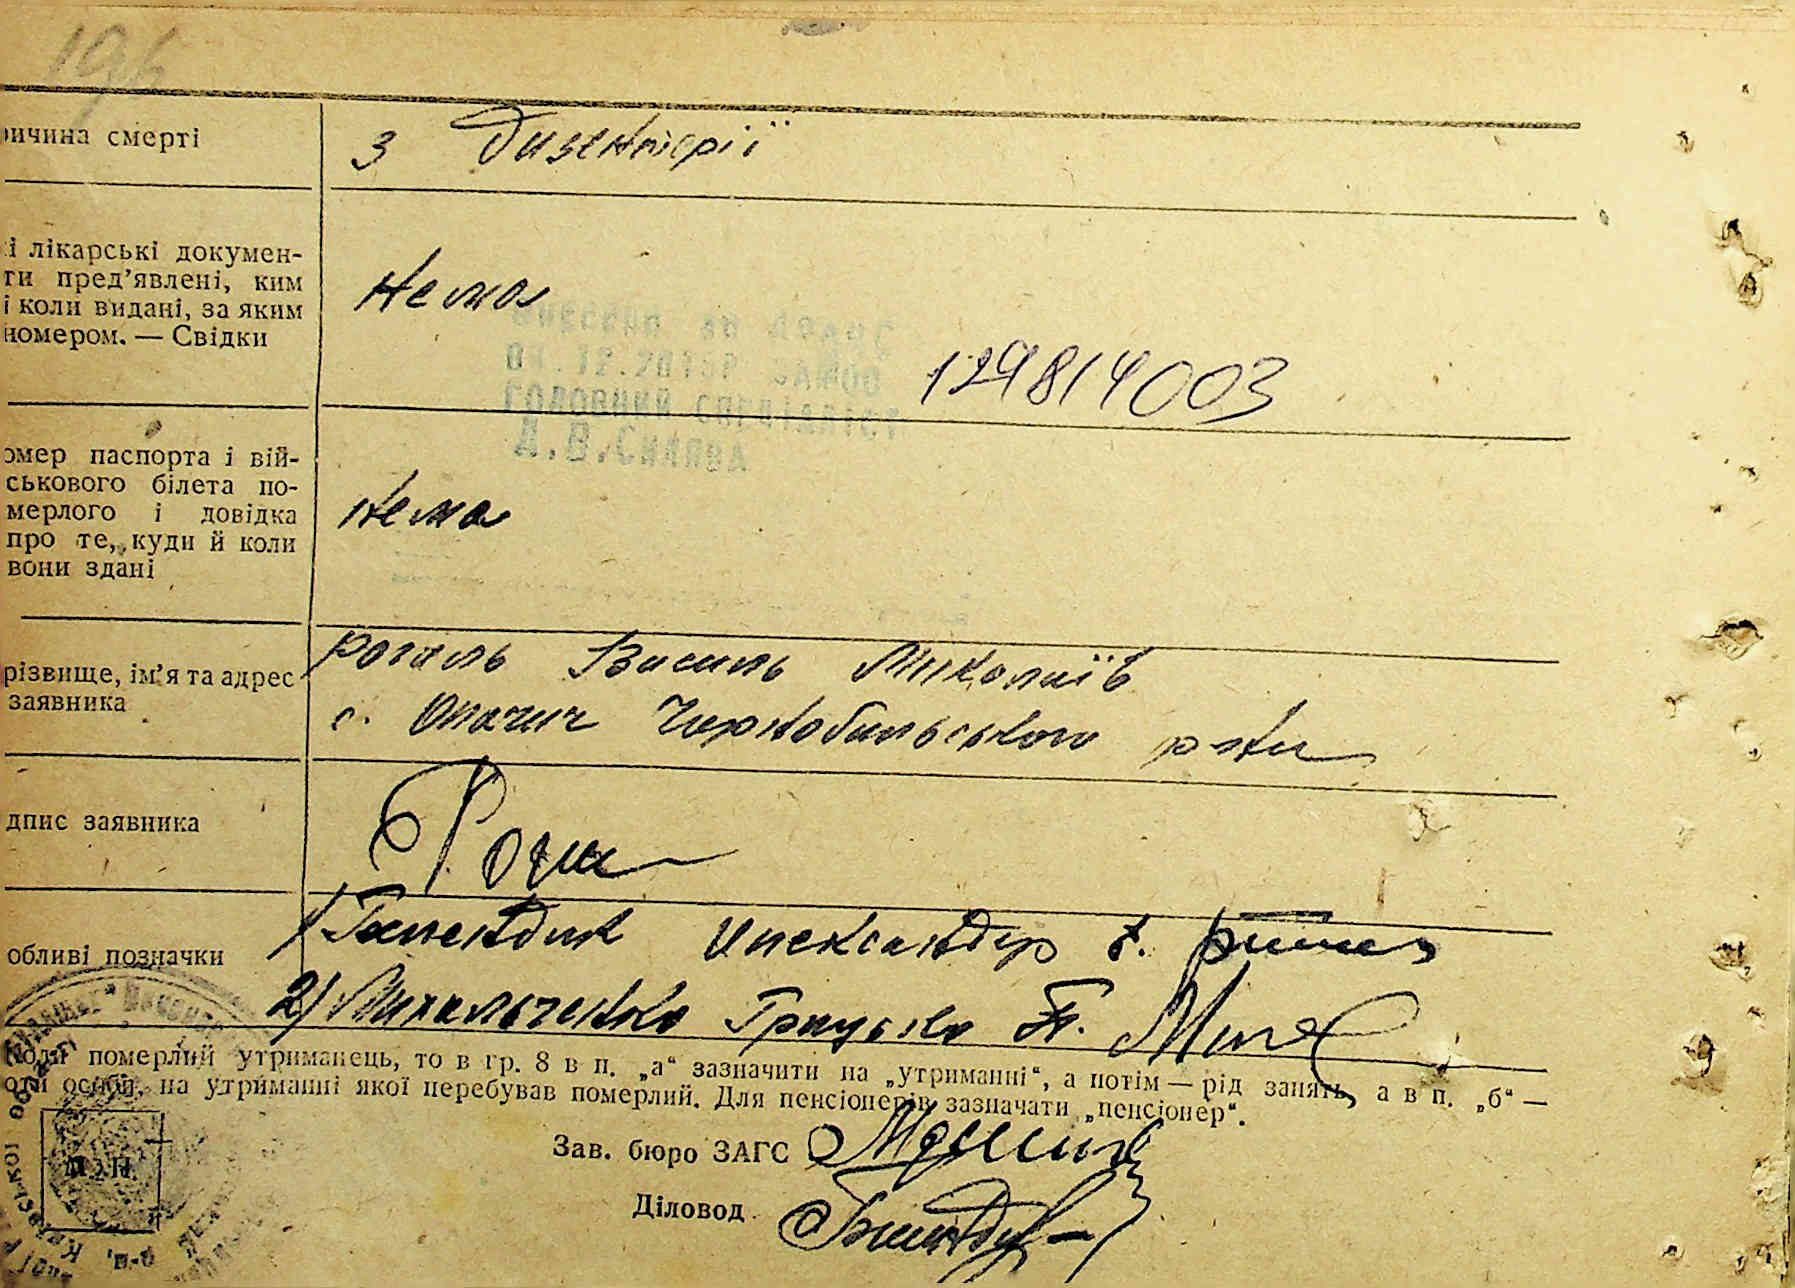 196
ричина смерті
з дизентерії
і лікарські докумен-
ти пред’явлені, ким
і коли видані, за яким
номером. — Свідки
Нема
129814003
ГОЛОВНИЙ СПЕЦІАЛІСТ
омер паспорта і вій-
ськового білета по-
мерлого і довідка
про те, куди й коли
вони здані
Нема
різвище, ім’я та адрес
заявника
Рогаль Василь Миколаїв
с. Опачич Чорнобильського р-ну
дпис заявника
обливі позначки
1/ Александер
2/ Михальченко Грицько П.
Коли померлий утриманець, то в гр. 8 в п. „а“ зазначити на „утриманні“, а потім — рід занять, а в п. „б“ —
оти особи, на утриманні якої перебував померлий. Для пенсіонерів зазначати „пенсіонер“.
Зав. бюро ЗАГС
Діловод